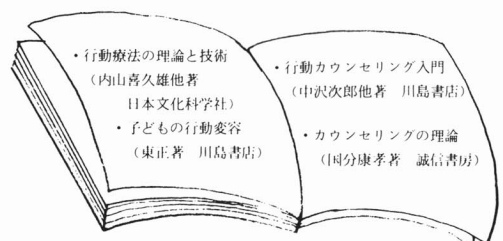 ・行動療法の理論と技術
（内山喜久雄他著
日本文化科学社）
・子どもの行動変容
（東正著　川島書店）
・行動カウンセリング入門
（中沢次郎他著　川島書店）
・カウンセリングの理論
（国分康孝著　誠信書房）